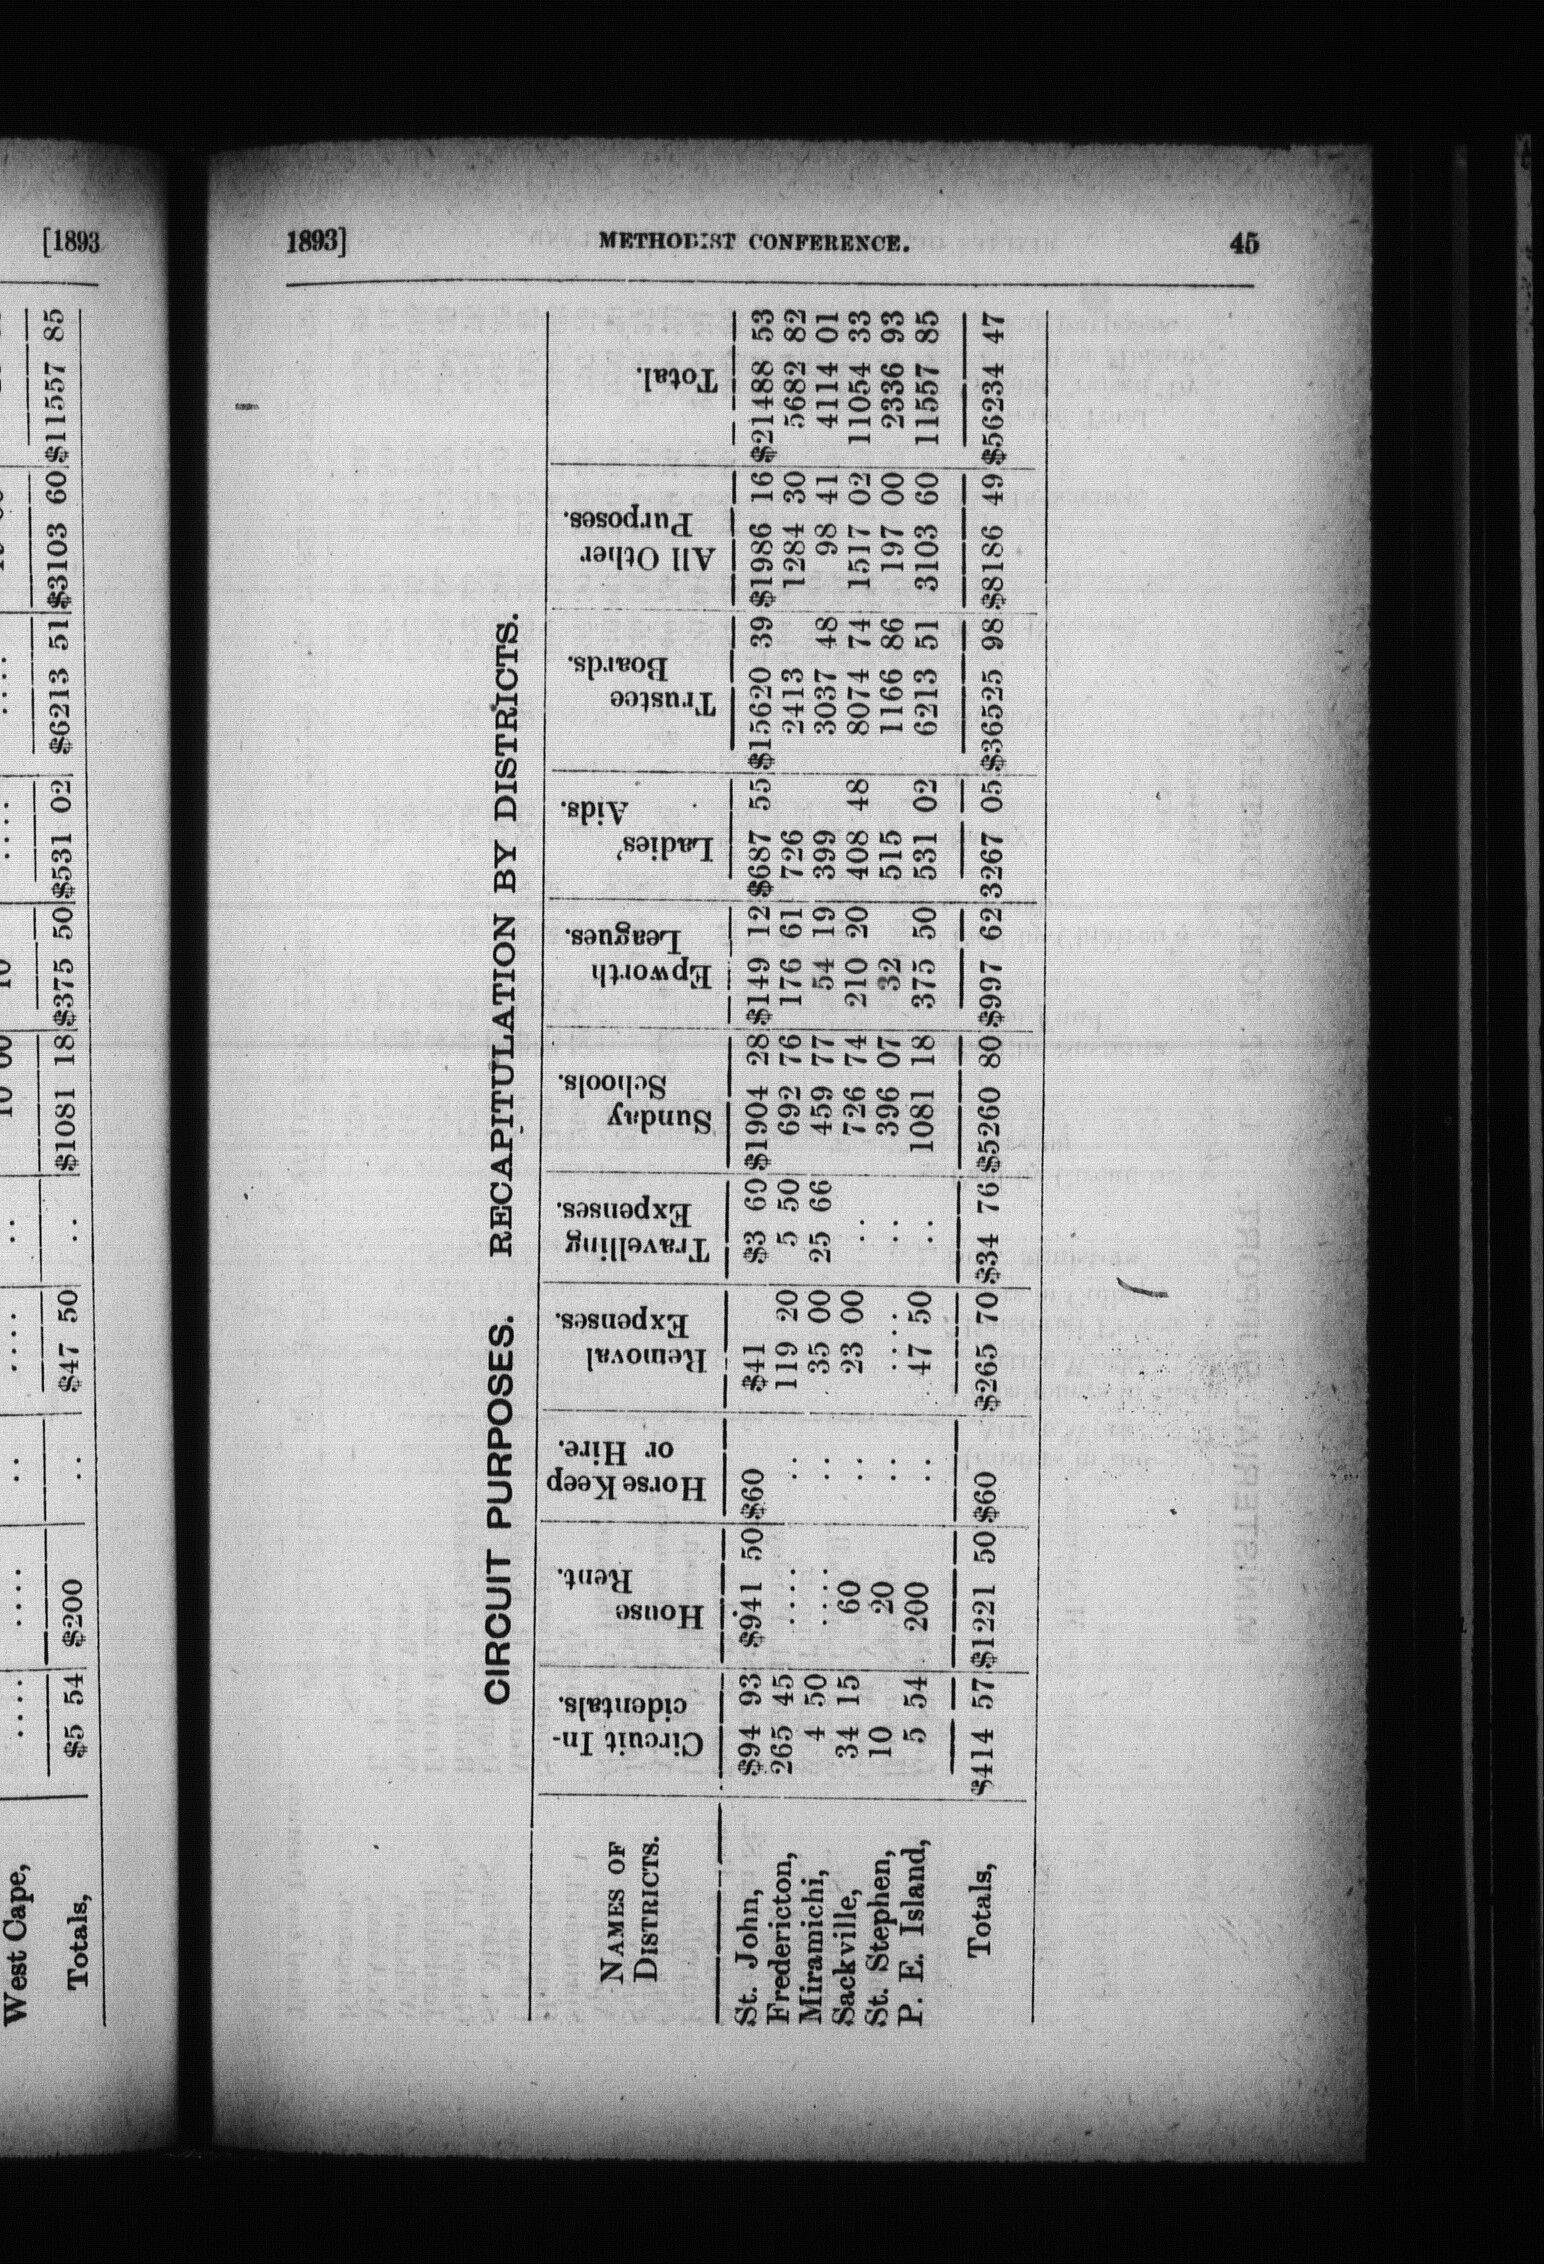 [1893
$5 54 $200 .. $47 50 .. $1081 18 $375 50 $531 02 $6213 51 $3103 60 $11557 85
West Cape,
Totals,
1893] METHODIST CONFERENCE. 45
CIRCUIT PURPOSES. RECAPITULATION BY DISTRICTS.
NAMES OF DISTRICTS. Circuit In-cidentals. House Rent. Horse Keep or Hire. Removal Expenses. Travelling Expenses. Sunday Schools. Epworth Leagues. Ladies' Aids. Trustee Boards. All Other Purposes. Total.
St. John, $94 93 $941 50 $60 $41 $3 60 $1904 28 $149 12 $687 55 $15620 39 $1986 16 $21488 53
Fredericton, 265 45 ..... .. 119 20 5 50 692 76 176 61 726 2413 1284 30 5682 82
Miramichi, 4 50 ..... .. 35 00 25 66 459 77 54 19 399 3037 48 98 41 4114 01
Sackville, 34 15 60 .. 23 00 .. 726 74 210 20 408 48 8074 74 1517 02 11054 33
St. Stephen, 10 20 .. .... .. 396 07 32 515 1166 86 197 00 2336 93
P. E. Island, 5 54 200 .. 47 50 .. 1081 18 375 50 531 02 6213 51 3103 60 11557 85
Totals, $414 57 $1221 50 $60 $265 70 $34 76 $5260 80 $997 62 3267 05 $36525 98 $8186 49 $56234 47